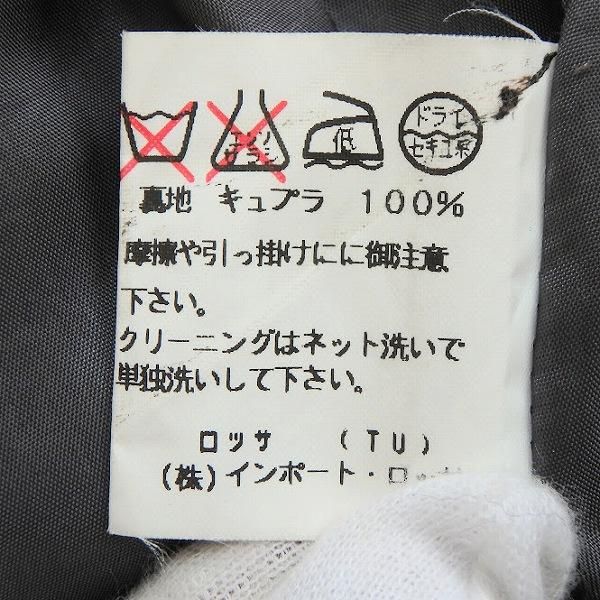 エンソ
サラシ
低
ドライ
セキユ系
裏地 キュプラ 100%
摩擦や引っ掛けにに御注意
下さい。
クリーニングはネット洗いで
単独洗いして下さい。
ロッサ (TU)
(株)インポート・ロッサ